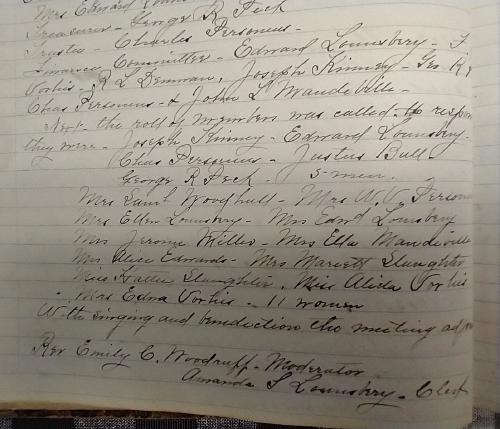 Mrs Edward
Treasurer - George R Peck
Trustee - Charles Personeus -
Finance Committee - Edward Lounsbery -
Vorhis - R L Denman, Joseph Kinney - Geo. R,
Chas Personeus - & John L Mandeville -
Next - the roll of members was called. to respon
they were - Joseph Kinney - Edward Lounsbery -
Chas Personeus - Justus Bull
George R Peck - 5 - men.
Mrs Saml Woodhull - Mrs W. V. Person
Mrs Ellen Lounsbery - Mrs Edwd Lounsbery
Mrs Jerome Miller - Mrs Ella Mandeville
Mrs Alice Edwards - Mrs Mariett Slaughter
Miss Hattie Slaughter, Miss Alida Vorhis
Mrs Edna Vorhis - 11 women
With singing and benediction the meeting adjou
Rev Emily C. Woodruff - Moderator
Amanda S Lounsbery - Clerk